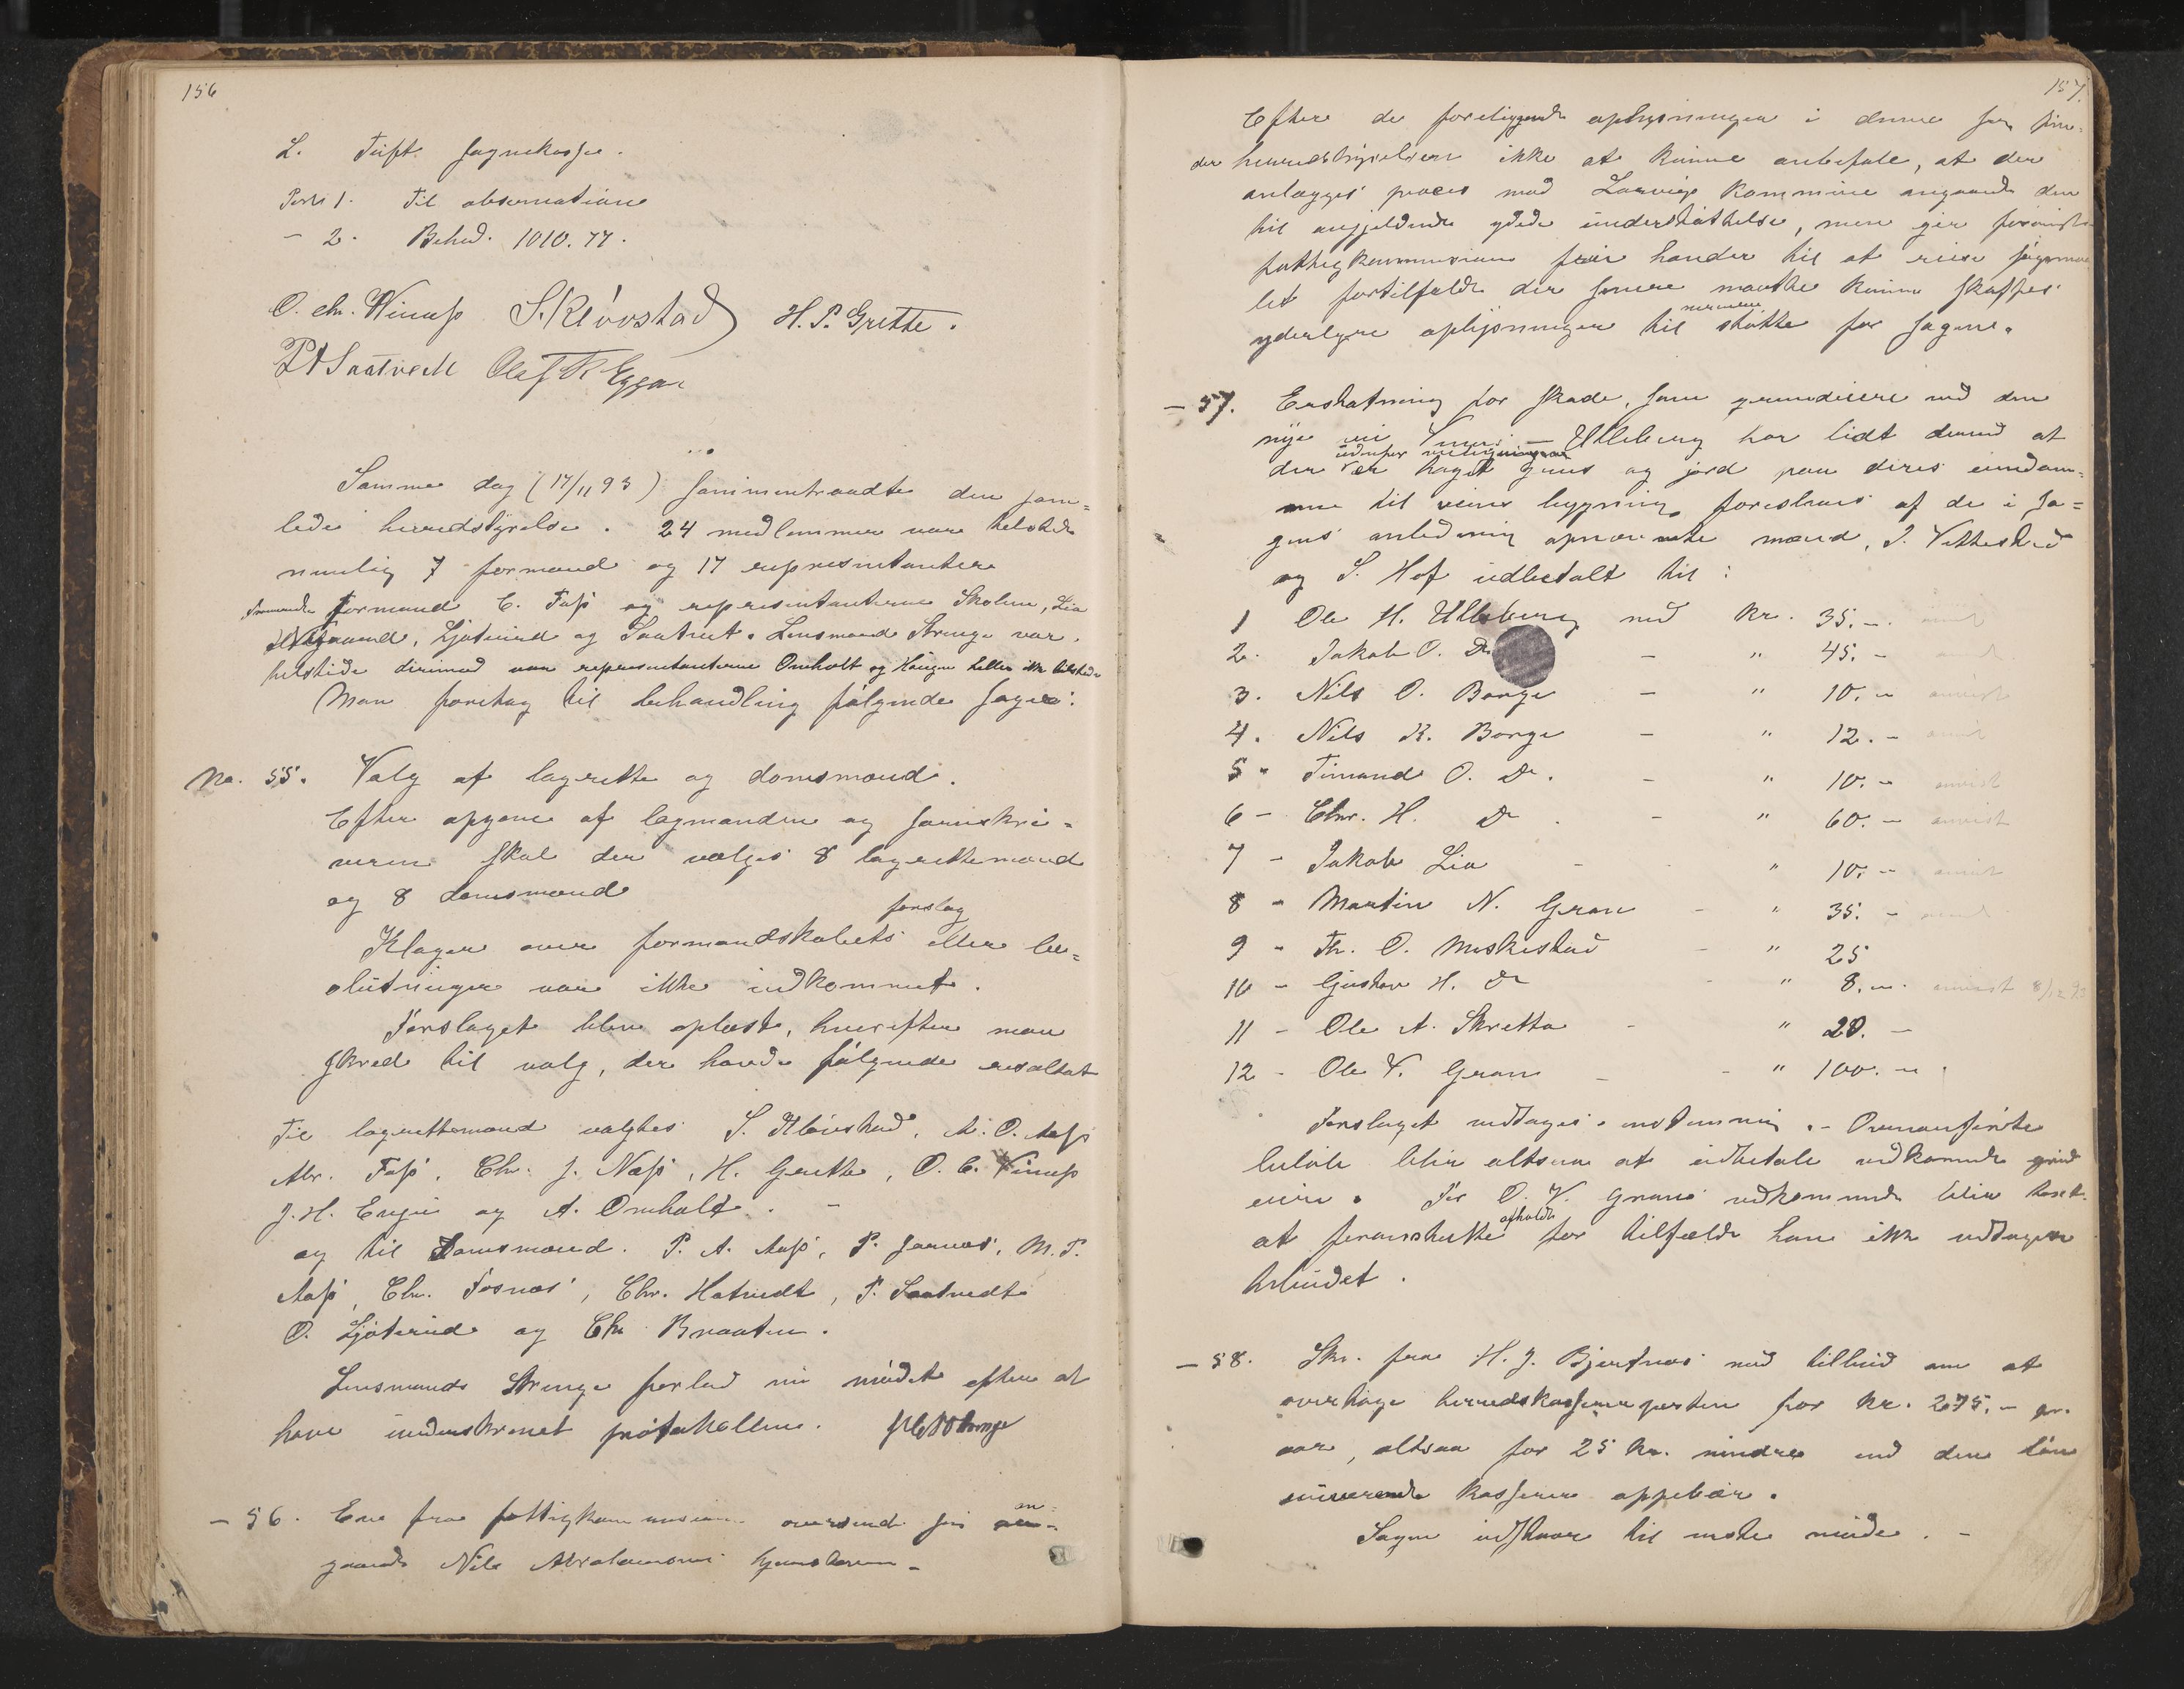 156
L. Tuft sognekasse.
Post 1. Til observation
- 2. Behold. 1010.77.
O. Chr. Winess S. Kløvstad H. P. Grette.
P A Saatvedt Olaf K Eggar
Samme dag (17/11 93) sammentraadte den sam=
lede herredstyrelse. 24 medlemmer var tilstede
nemlig 7 formænd og 17 representanter
formand C. Fass og representanterne Skolm, Lia
Ljøterud og Saatvet. Lensmand Strenge var
tilstede derimod var representanterne Omholt og Haugen heller ikke tilstede
Man foretog til behandling følgende sager:
No. 55. Valg af lagrette og domsmænd.
Efter opgave af lagmanden og sorenskri=
veren skal der vælges 8 lagrettemænd
og 8 domsmænd
forslag
Klager over formandskabets eller be=
slutninger var ikke indkommet.
Forslaget blev oplæst, hvorefter man
skred til valg, der havde følgende resultat
Til lagrettemænd valgtes S. Kløvstad, A. O. Aass
Abr. Fass, Chr. J. Næss, H. Grette, O. C. Winess
J. H. Enge og A. Omholt. -
og til Domsmænd. P. A. Aass, P. Jarnæs, M. P.
Aass, Chr. Fosnæs, Chr. Hatvedt, P. Saatvedt
O. Ljøterud og Chr Braaten.
Lensmand Strenge forlod nu mødet efter at
have underskrevet protokollen.
- 56. En fra fattigkommissionen oversendt sag an=
gaaende Nils Abrahamsens hjemstavn -
157.
Efter de foreliggende oplysninger i denne sag fin=
der herredstyrelsen ikke at kunne anbefale, at der
anlægges proces mod Larvigs kommune angaaende den
til angjeldende ydede understøttelse, men gir forøvrigt
fattigkommissionen frie hænder til at reise søgsmaa
let fortilfælde der senere maatte kunne skaffes
nærmere
yderligere oplysninger til støtte for sagen.
- 57. Erstatning for skade, som grundeiere ved den
nye vei - Ulleberg har lidt derved at
udenfor
der er taget grus og jord paa deres eiendom=
me til veiens bygning foreslaaes af de i sa=
gens anledning opnævnte mænd, J. Vittestad
og S. Hof udbetalt til:
1 Ole H. Ulleberg med Kr. 35. -. anvist
2. Jakob O. Do - " 45. -
3. Nils O. Borge - " 10. - anvist
4. Nils K. Borge - " 12. - anvist
5 " Timand O. Do. - " 10. - anvist
6 - Chr. H. Do. - " 60. - anvist
7 - Jakob Lia - " 10. - anvist
8 - Martin N. Gran - " 35. - anvist
9 - Th. O. Miskestad - " 25
10 - Gustav H. Do - " 8. -. anvist 8/12 93
11 - Ole A. Skretta - " 20. -
12 - Ole V. Gran - - " 100. - .
Forslaget vedtages enstemmig. - Ovenanførte
beløb blir altsaa at udbetale vedkommende grund
eier. For O. V. Grans vedkommende blir
afholdt
at for tilfælde han ikke vedtager
tilbudet.
- 58. Skr. fra H. J. Bjertnæs med tilbud om at
overtage herredskassererposten for Kr. 275. - pr.
aar, altsaa for 25 kr. mindre end den løn
nuværende kasserer oppebær.
Sagen udstaar til næste møde. -